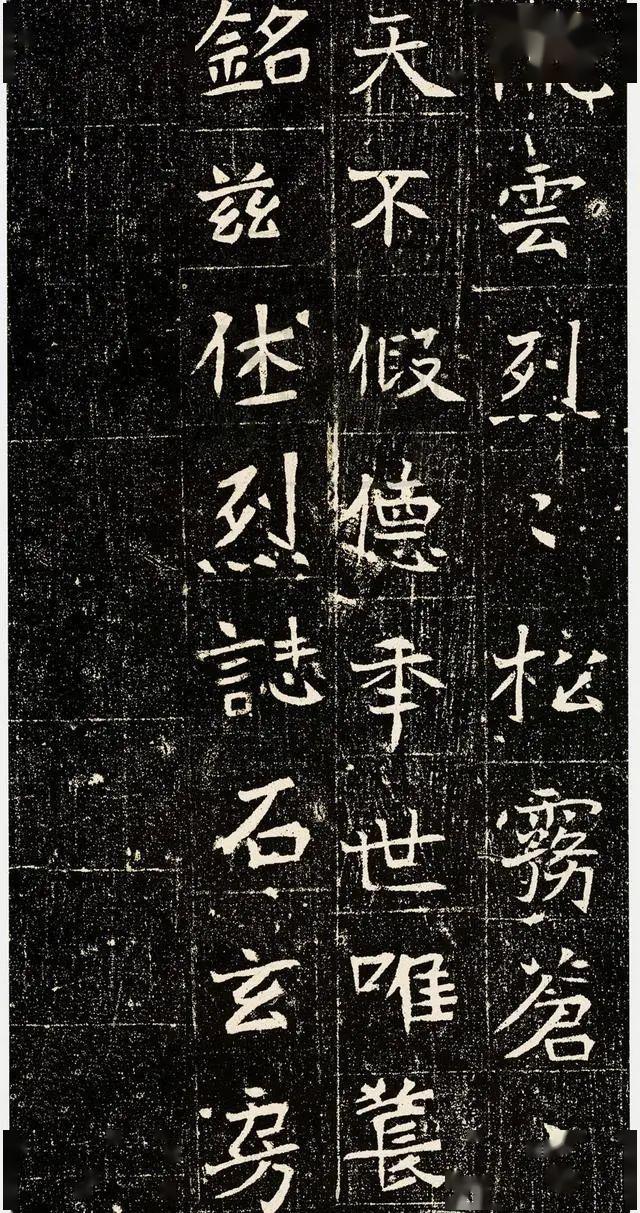 雲烈〻松霧蒼〻
天不假德秊世唯
銘兹休烈誌石玄房